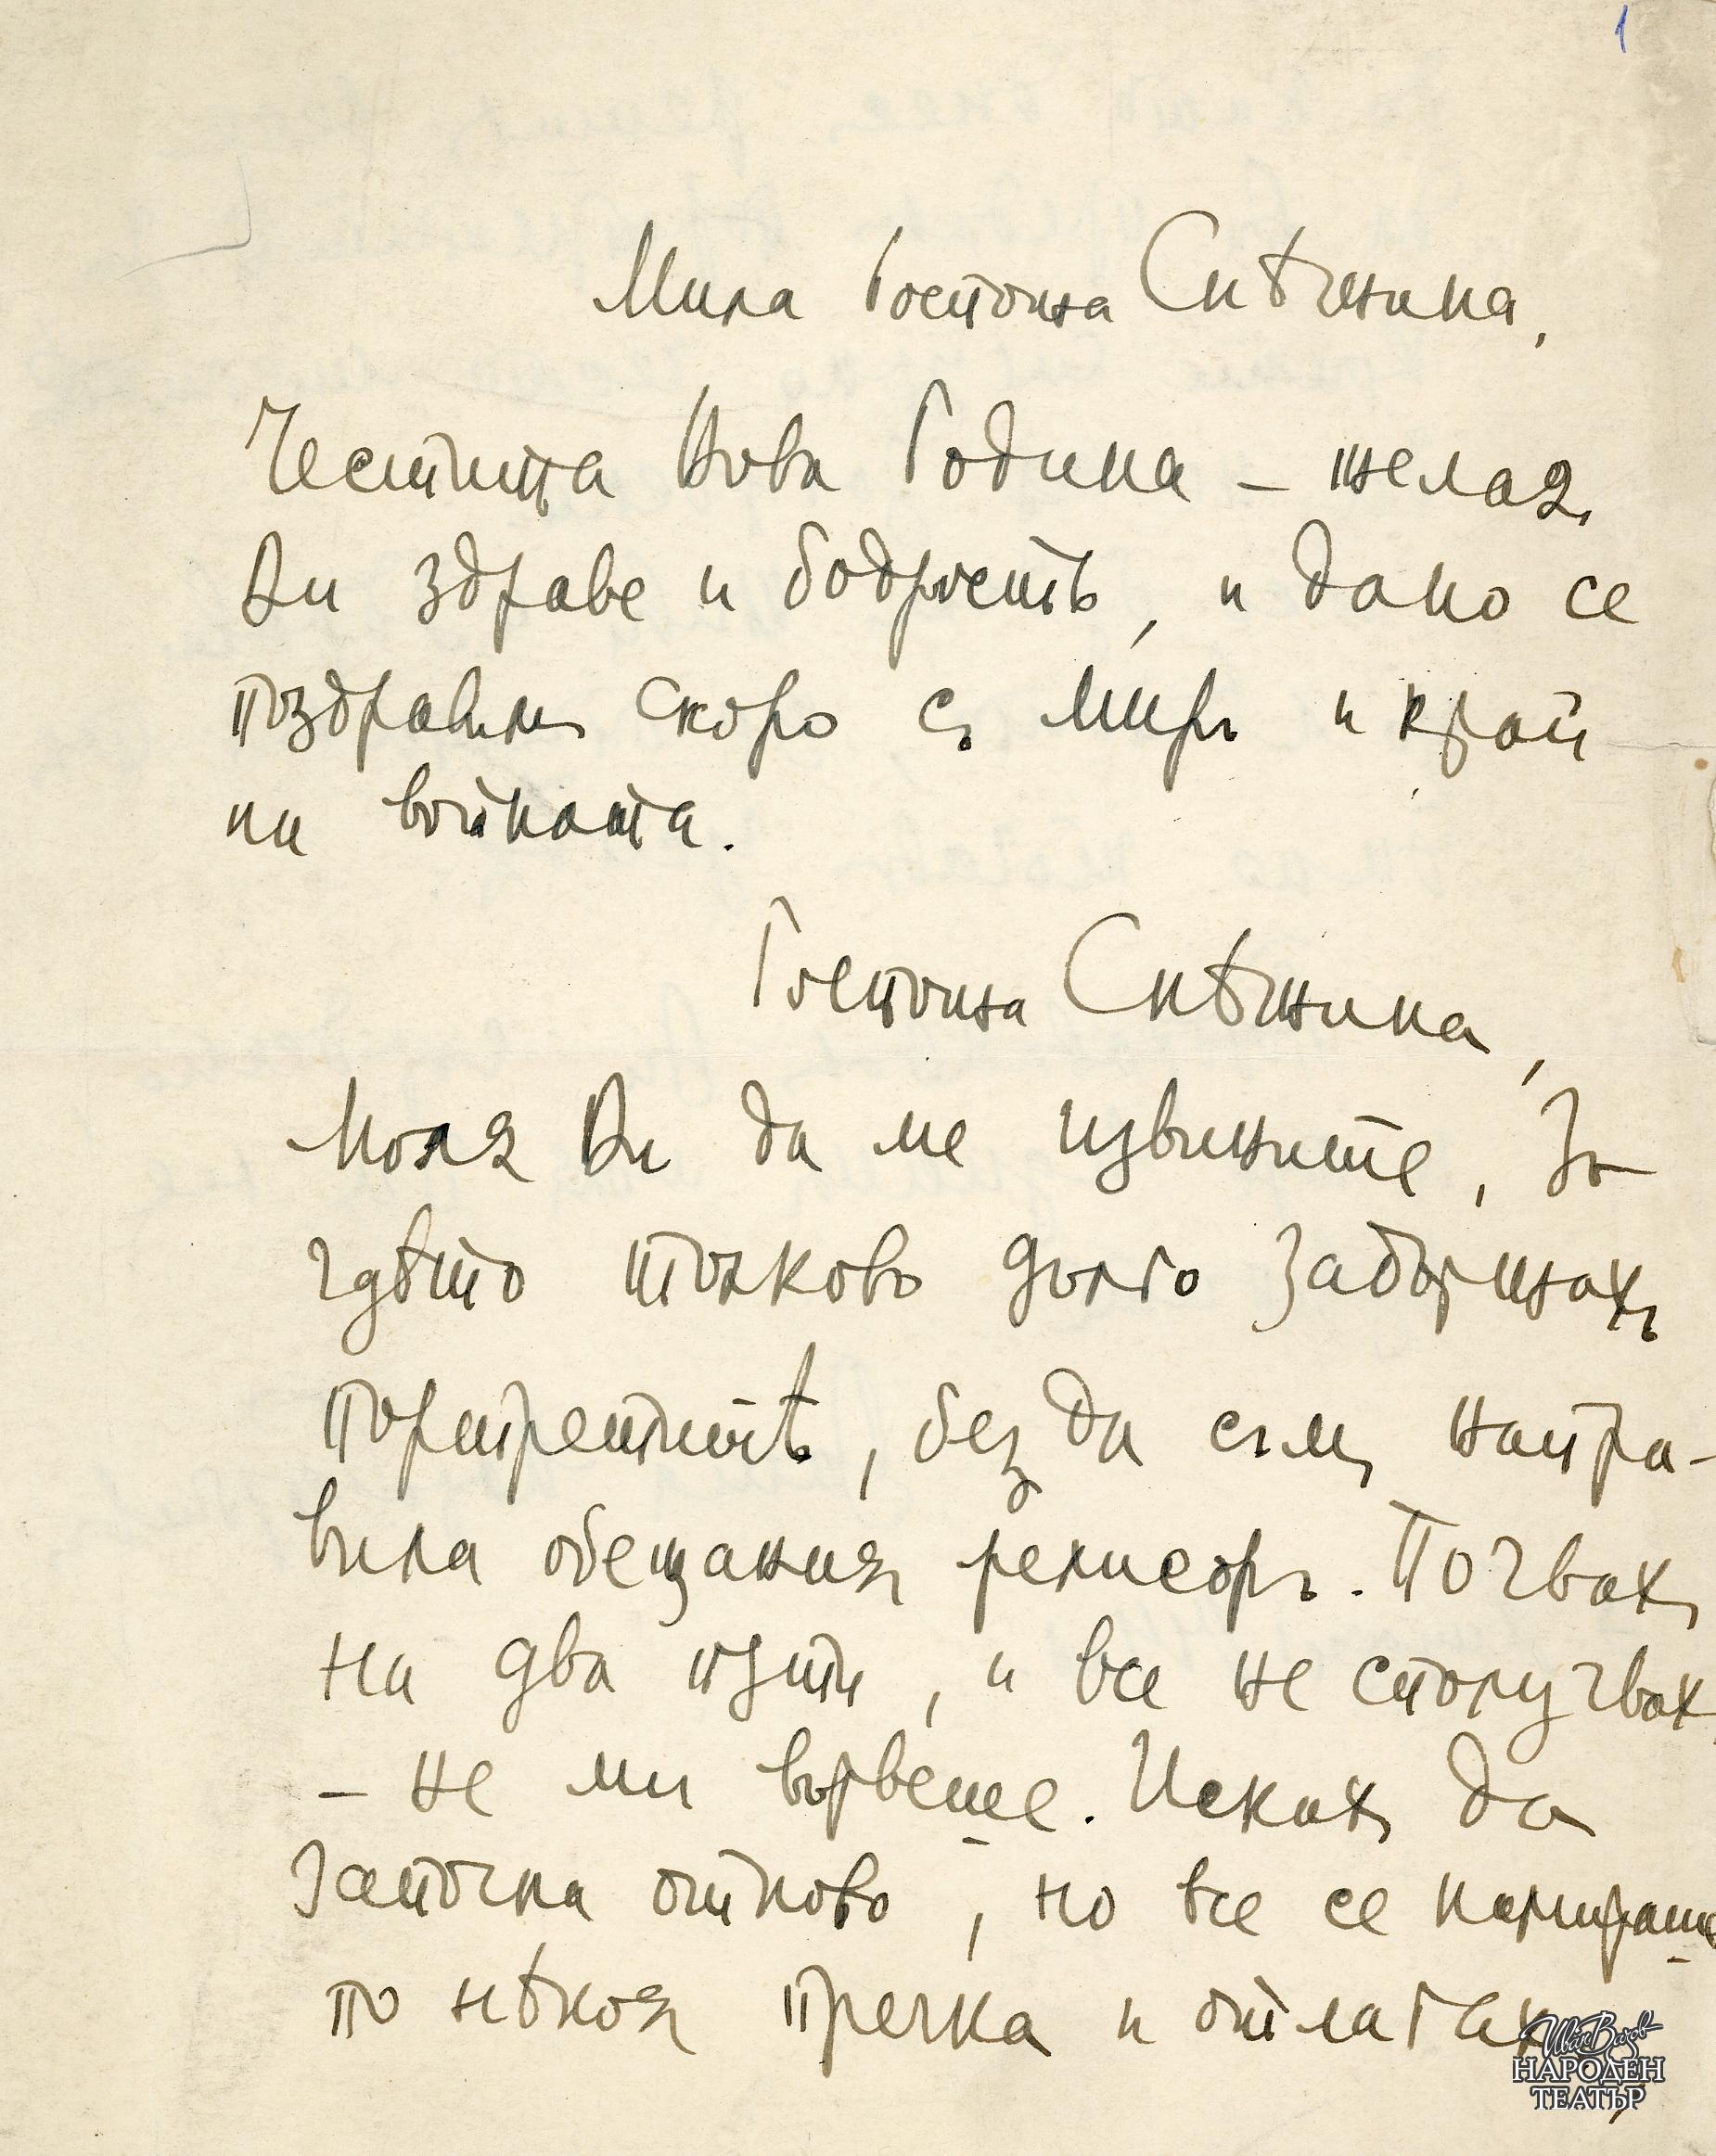 1
Мила Госпожа Снѣжина,
Честита Нова Година – желая
Ви здраве и бодрость, и дано се
поздравим скоро съ миръ и край
на войната.
Госпожа Снѣжина,
Моля Ви да ме извините, За
гдѣто толково дълго задържахъ
портретитѣ, без да съмъ напра-
вила обещания релиефъ. Почвахъ
на два пѫти, и все не сполучвах
– не ми вървеше. Искахъ да
започна отново, но все се намираше
по нѣкоя пречка и отлагах,
Иван Вазов
НАРОДЕН
ТЕАТЪР